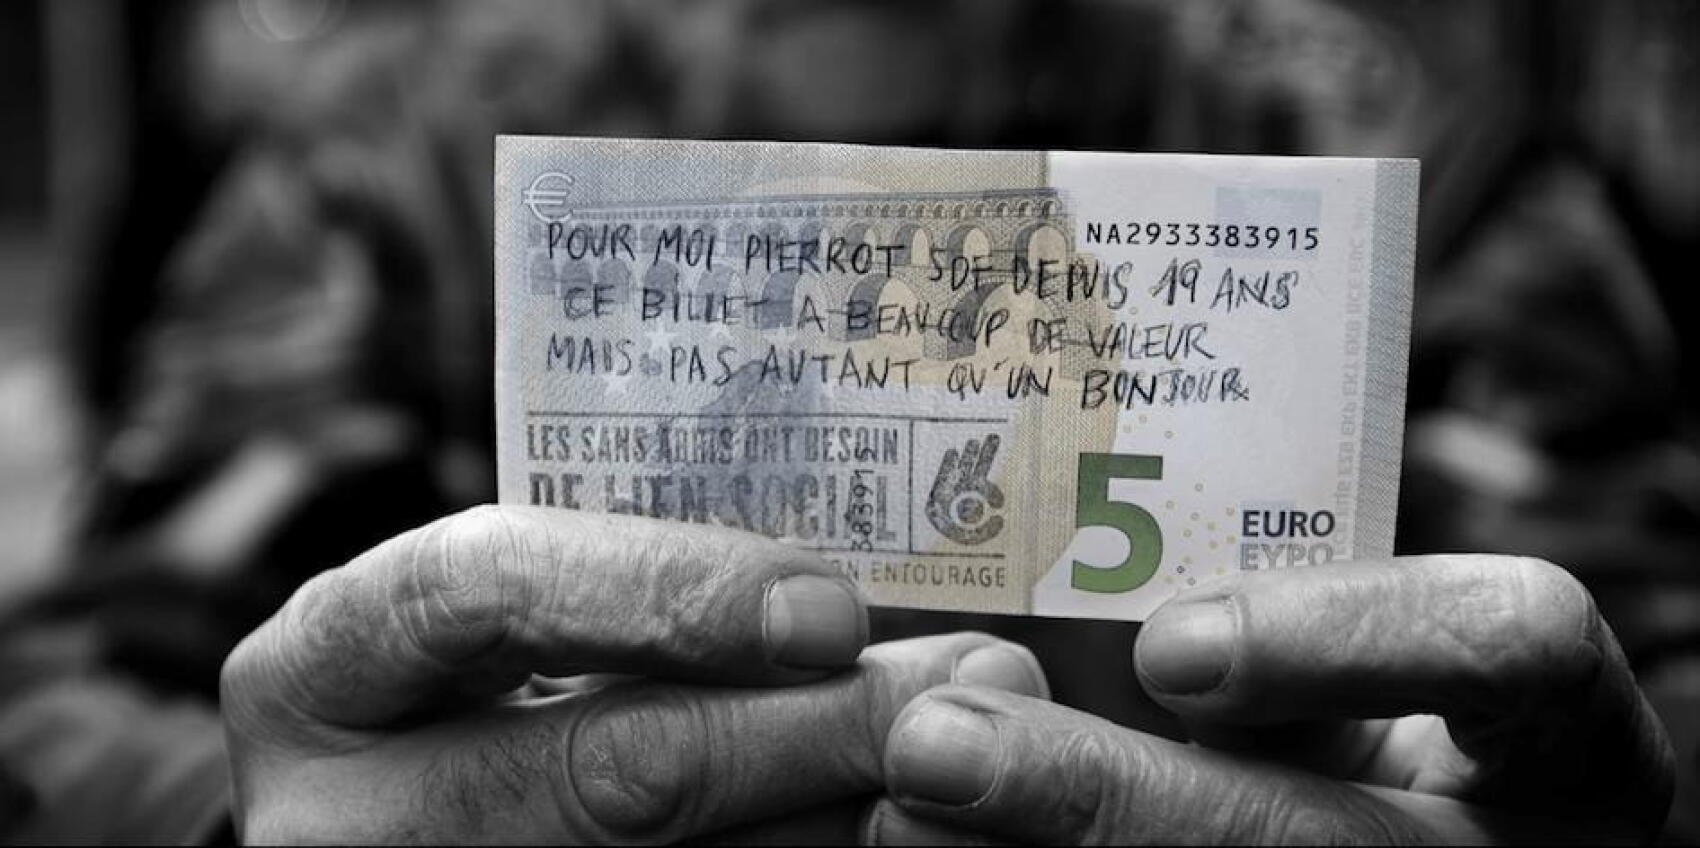 €
NA2933383915
POUR MOI PIERROT SDF DEPUIS 19 ANS
CE BILLET A BEAUCOUP DE VALEUR
MAIS PAS AUTANT QU'UN BONJOUR
LES SANS ABRIS ONT BESOIN
DE LIEN SOCIAL
383915
ENTOURAGE
5
EURO
ΕΥΡΩ